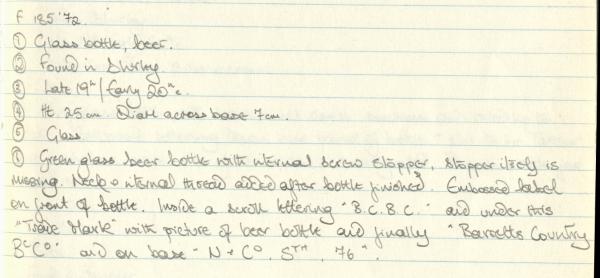 F 185'72.
① Glass bottle, beer.
② Found in Shirley
③ Late 19th / Early 20th c.
④ Ht. 25 cm. Diam across base 7cm.
⑤ Glass
⑥ Green glass beer bottle with internal screw stopper, stopper itself is
missing. Neck & internal thread added after bottle finished. Embossed label
on front of bottle. Inside a scroll lettering "B.C.B.C." and under this
"Trade Mark" with picture of beer bottle and finally "Barretts Country
BC Co." and on base "N & Co. STH, 76".